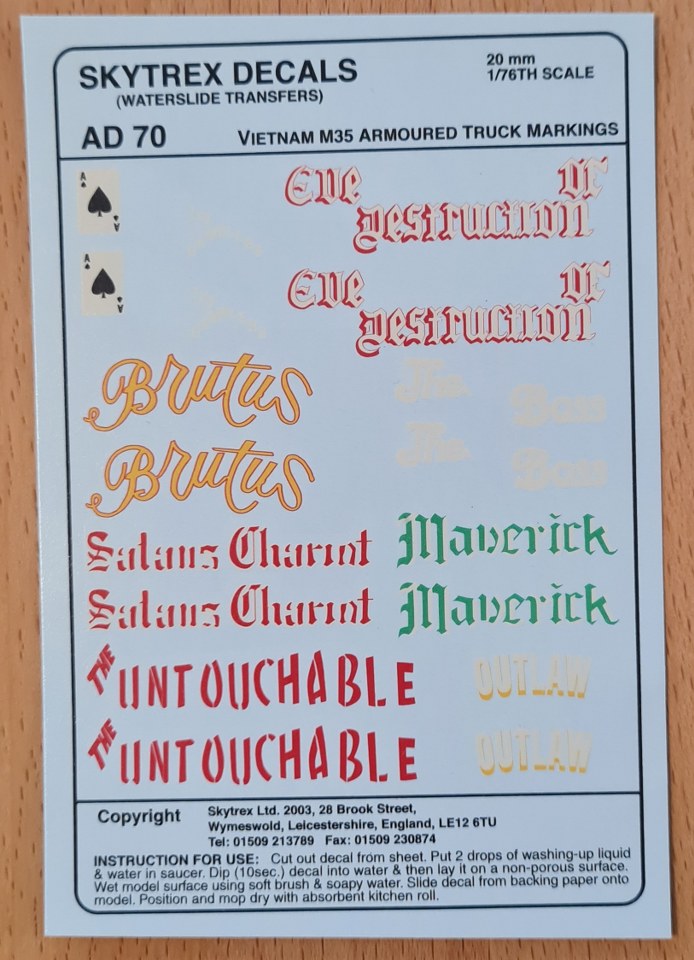 SKYTREX DECALS
(WATERSLIDE TRANSFERS)
20 mm
1/76TH SCALE
AD 70
VIETNAM M35 ARMOURED TRUCK MARKINGS
A
A
Eve Of
Destruction
A
A
Eve Of
Destruction
Brutus
The Boss
Brutus
The Boss
Satans Chariot
Maverick
Satans Chariot
Maverick
THE UNTOUCHABLE
OUTLAW
THE UNTOUCHABLE
OUTLAW
Copyright
Skytrex Ltd. 2003, 28 Brook Street,
Wymeswold, Leicestershire, England, LE12 6TU
Tel: 01509 213789 Fax: 01509 230874
INSTRUCTION FOR USE: Cut out decal from sheet. Put 2 drops of washing-up liquid
& water in saucer. Dip (10sec.) decal into water & then lay it on a non-porous surface.
Wet model surface using soft brush & soapy water. Slide decal from backing paper onto
model. Position and mop dry with absorbent kitchen roll.